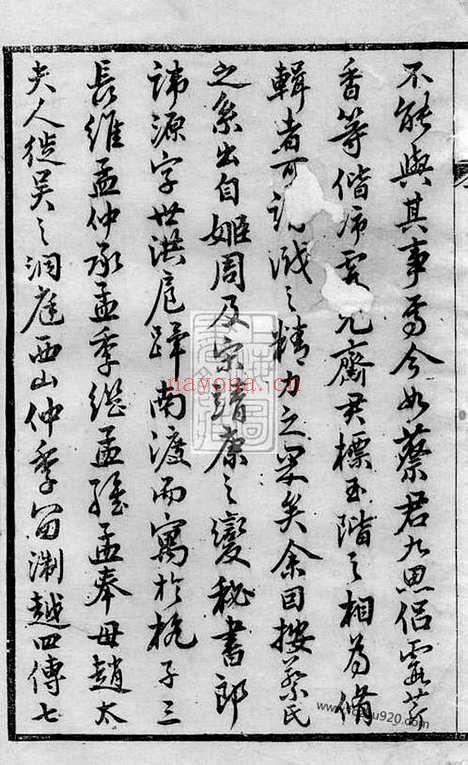 不能與其事焉今如蔡君九思侶霞
香等偕席君標玉階之相為脩
輯者可之精力之矣余因按蔡氏
之系出自姬周及宋靖康之變秘書郎
諱源字世洪扈蹕南渡而寓於杭子三
長維孟仲承孟季繼孟維孟奉母趙太
夫人徙吳之洞庭西山仲季留淛越四傳七
nayona.cn